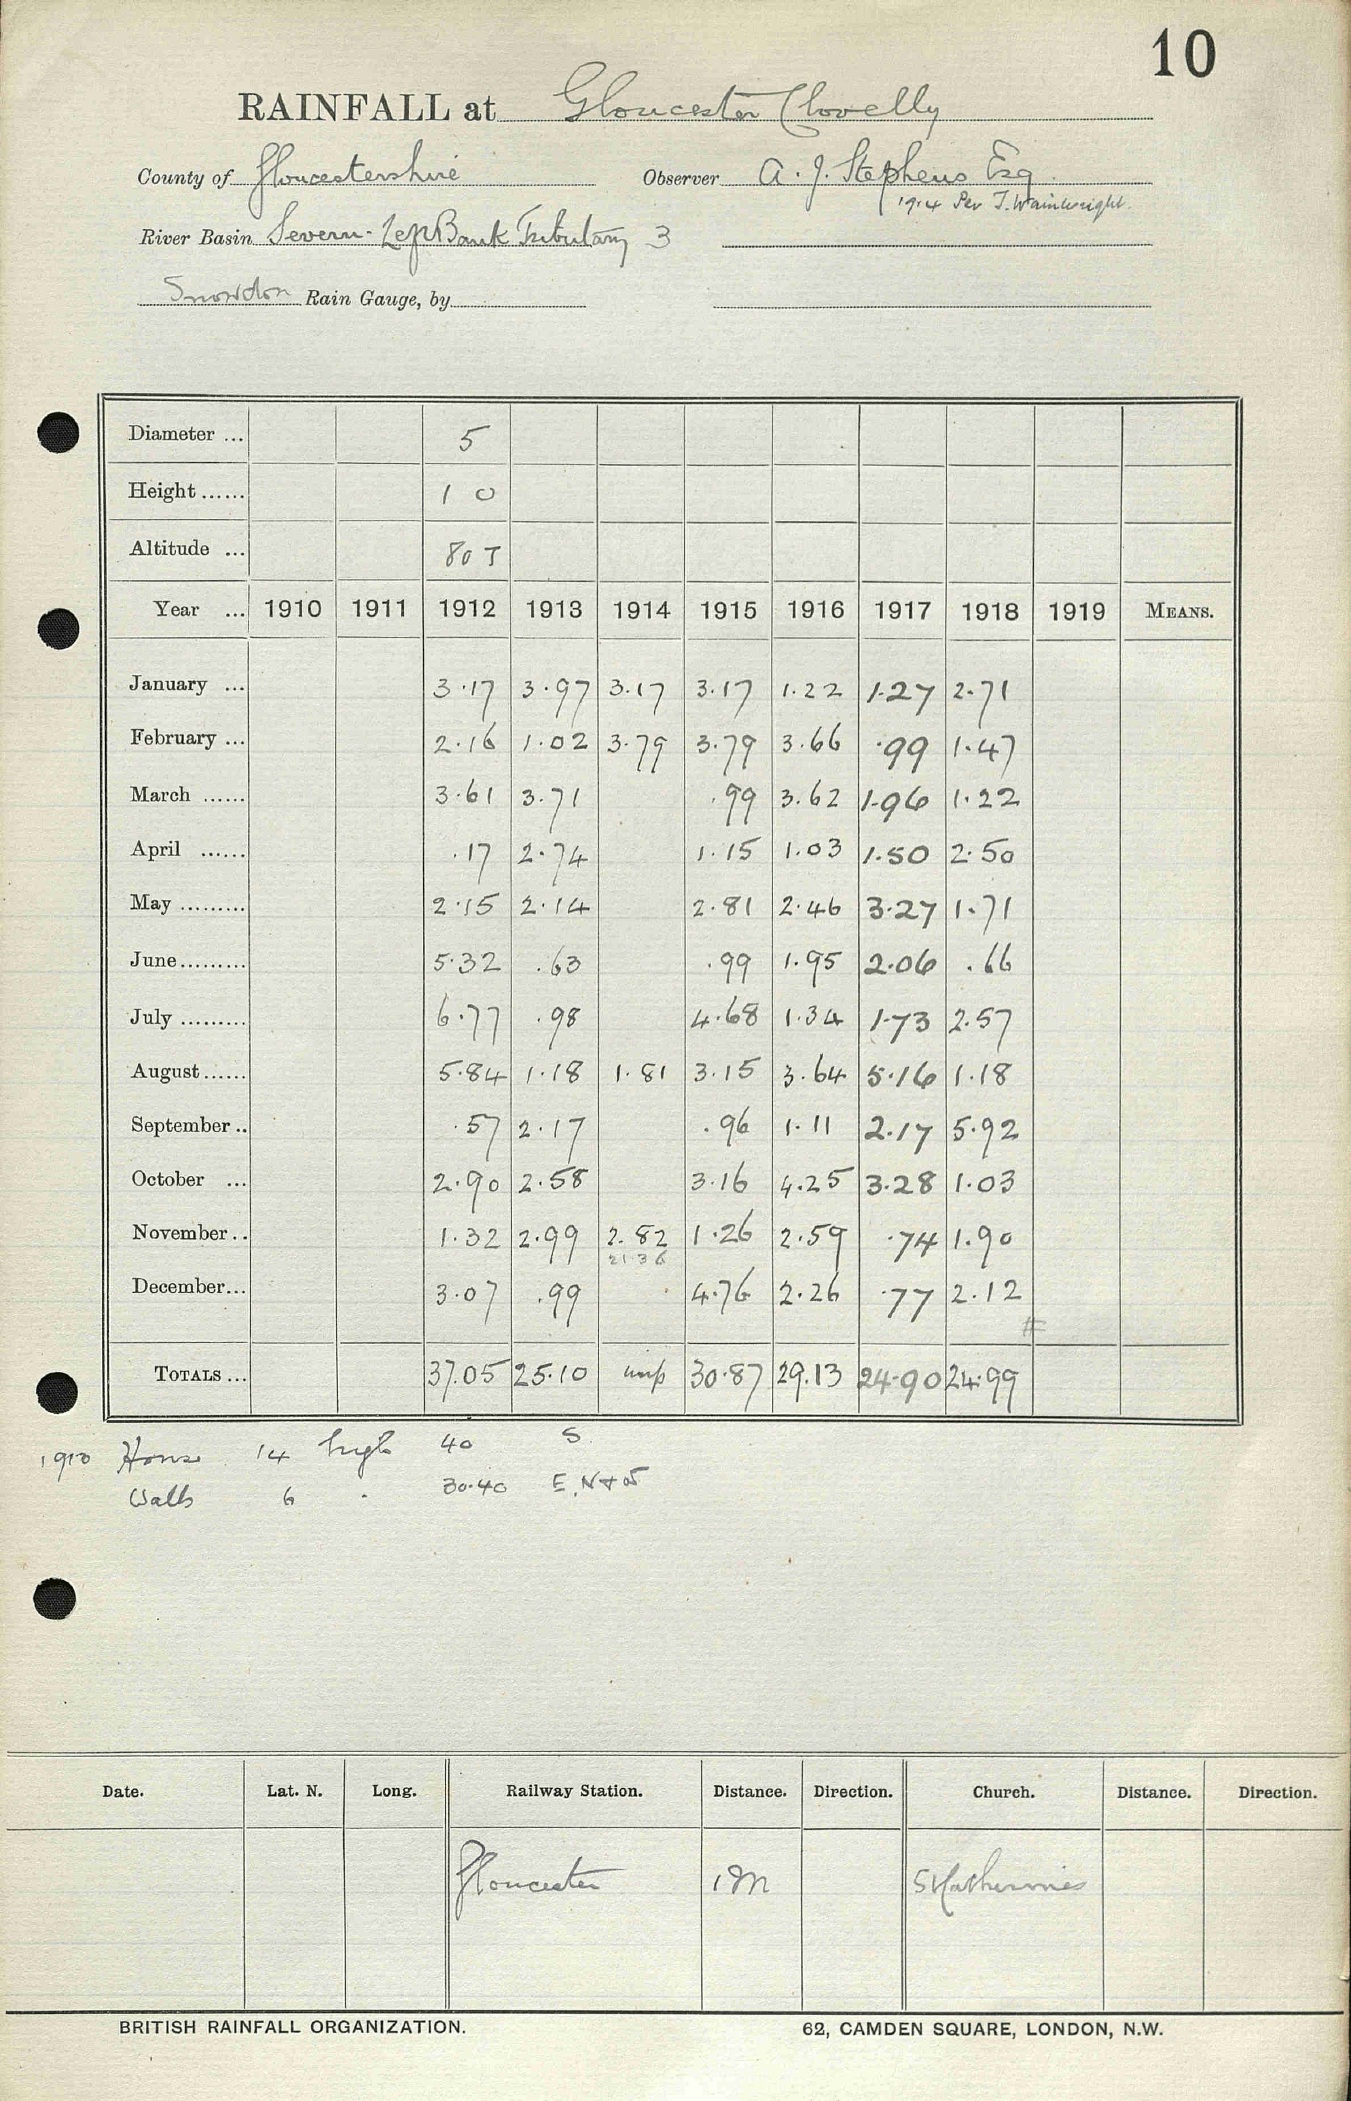 10
RAINFALL at Gloucester Clovelly
County of Gloucestershire Observer A. J. Stephens Esq
1914 Per T. Wainwright.
River Basin Severn - Left Bank Tributary 3
Snowdon Rain Gauge, by
Diameter ... 5
Height ...... 1 0
Altitude ... 80 T
Year ... 1910 1911 1912 1913 1914 1915 1916 1917 1918 1919 MEANS.
January ... 3.17 3.97 3.17 3.17 1.22 1.27 2.71
February ... 2.16 1.02 3.79 3.79 3.66 .99 1.47
March ...... 3.61 3.71 .99 3.62 1.96 1.22
April ...... .17 2.74 1.15 1.03 1.50 2.50
May ......... 2.15 2.14 2.81 2.46 3.27 1.71
June......... 5.32 .63 .99 1.95 2.06 .66
July ......... 6.77 .98 4.68 1.34 1.73 2.57
August...... 5.84 1.18 1.81 3.15 3.64 5.16 1.18
September .. .57 2.17 .96 1.11 2.17 5.92
October ... 2.90 2.58 3.16 4.25 3.28 1.03
November .. 1.32 2.99 2.82 1.26 2.59 .74 1.90
21.36
December... 3.07 .99 4.76 2.26 .77 2.12
TOTALS ... 37.05 25.10 imp 30.87 29.13 24.90 24.99
House 14 high 40 S
Walls 6 30.40 E, N + W
Date. Lat. N. Long. Railway Station. Distance. Direction. Church. Distance. Direction.
Gloucester 1 M St Catherines
BRITISH RAINFALL ORGANIZATION. 62, CAMDEN SQUARE, LONDON, N.W.